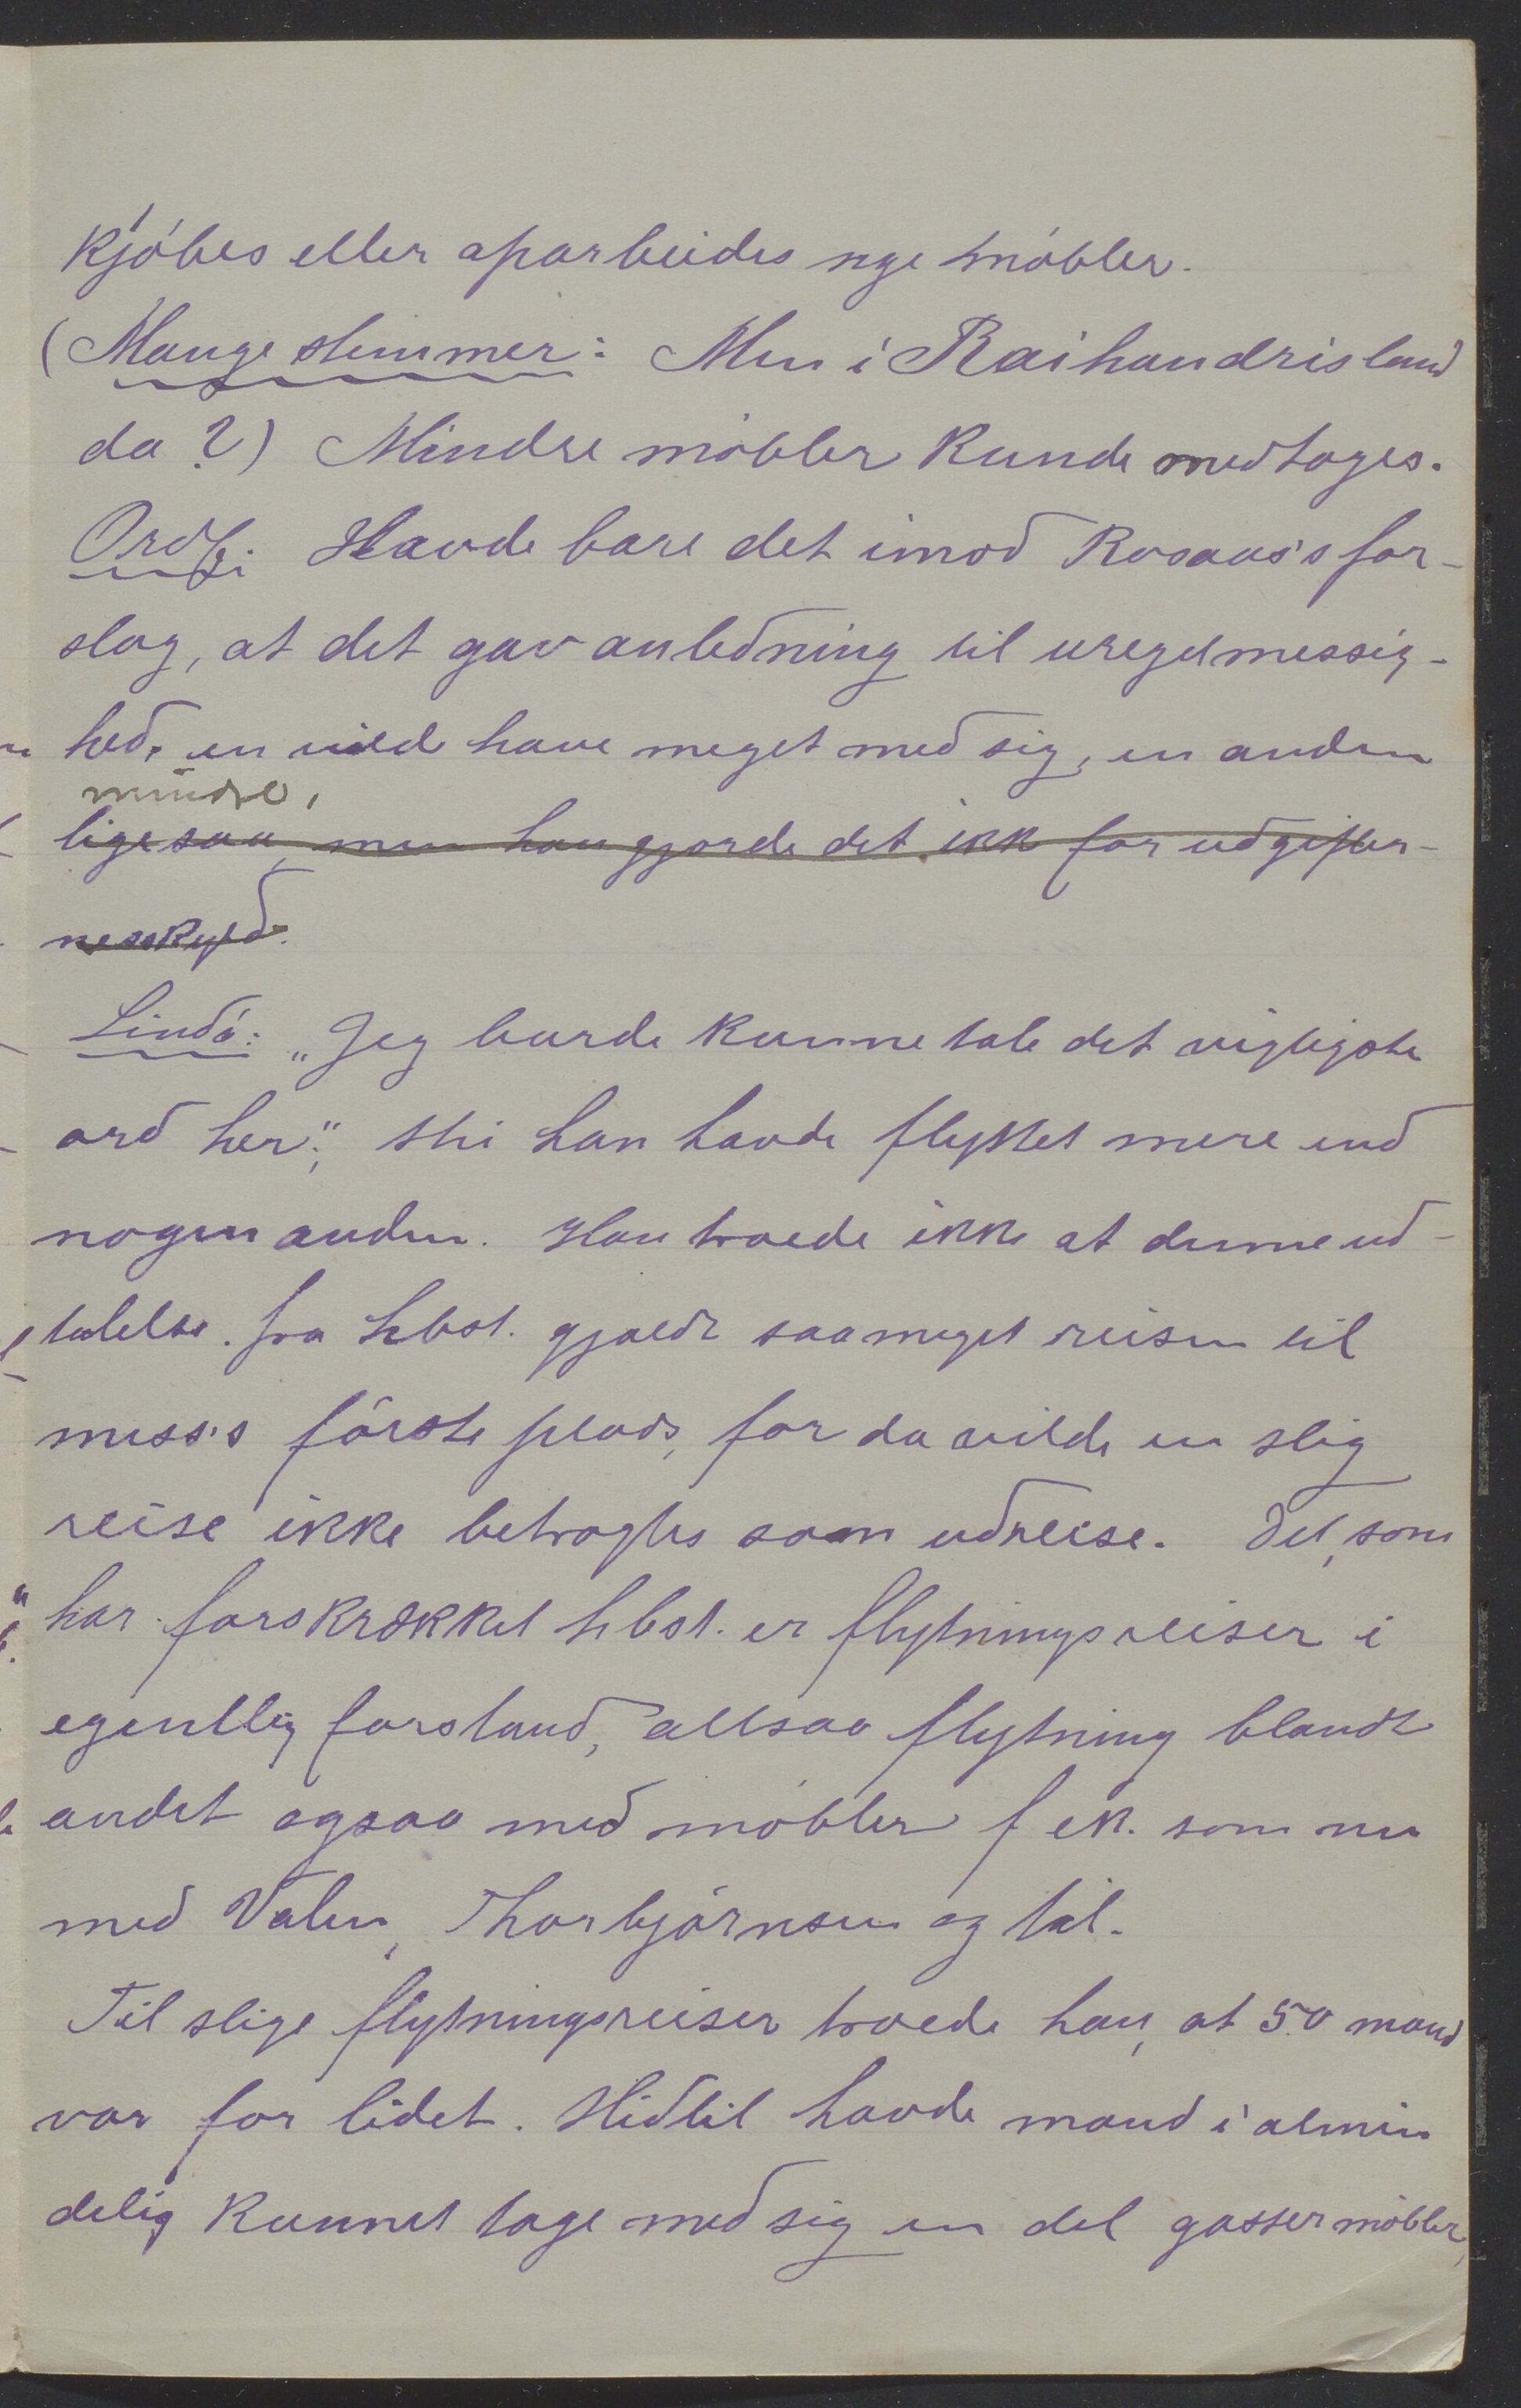 kjöbes eller oparbeides nye möbler.
(Mange stemmer: Men i Raihandrisland
da?) Mindre möbler kunde medtages.
Ordf: Havde bare det imod Rosaas's for-
slag, at det gav anledning til uregelmessig-
hed, en vilde have meget med sig, en anden
mindre,
ligesaa, men han gjorde det ikk for udgifter-
nesskyld.
Lindö: "Jeg burde kunne tale det vigtigste
ord her"; thi han havde flyttet mere end
nogen anden. Han troede ikke at denne ud-
talelse fra hbst. gjaldt saameget reisen til
miss's förste plads, for da vilde en slig
reise ikke betragtes som udreise. Det, som
har forskrækket hbst. er flytningsreiser i
egentlig forstand, altsaa flytning blandt
andet ogsaa med möbler f ex. som nu
med Valen, Thorbjörnsen og fal.
Til slige flytningsreiser troede han, at 50 mand
var for lidet. Hidtil havde mand i almin
delig kunnet tage med sig en del gasser möbler,